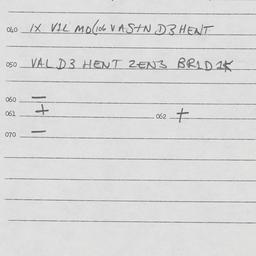 040 IX VIL MOC106 VASTN D3 HENT
050 VAL D3 HENT 2EN3 BR1D1K
060 —
061 + 062 +
070 —